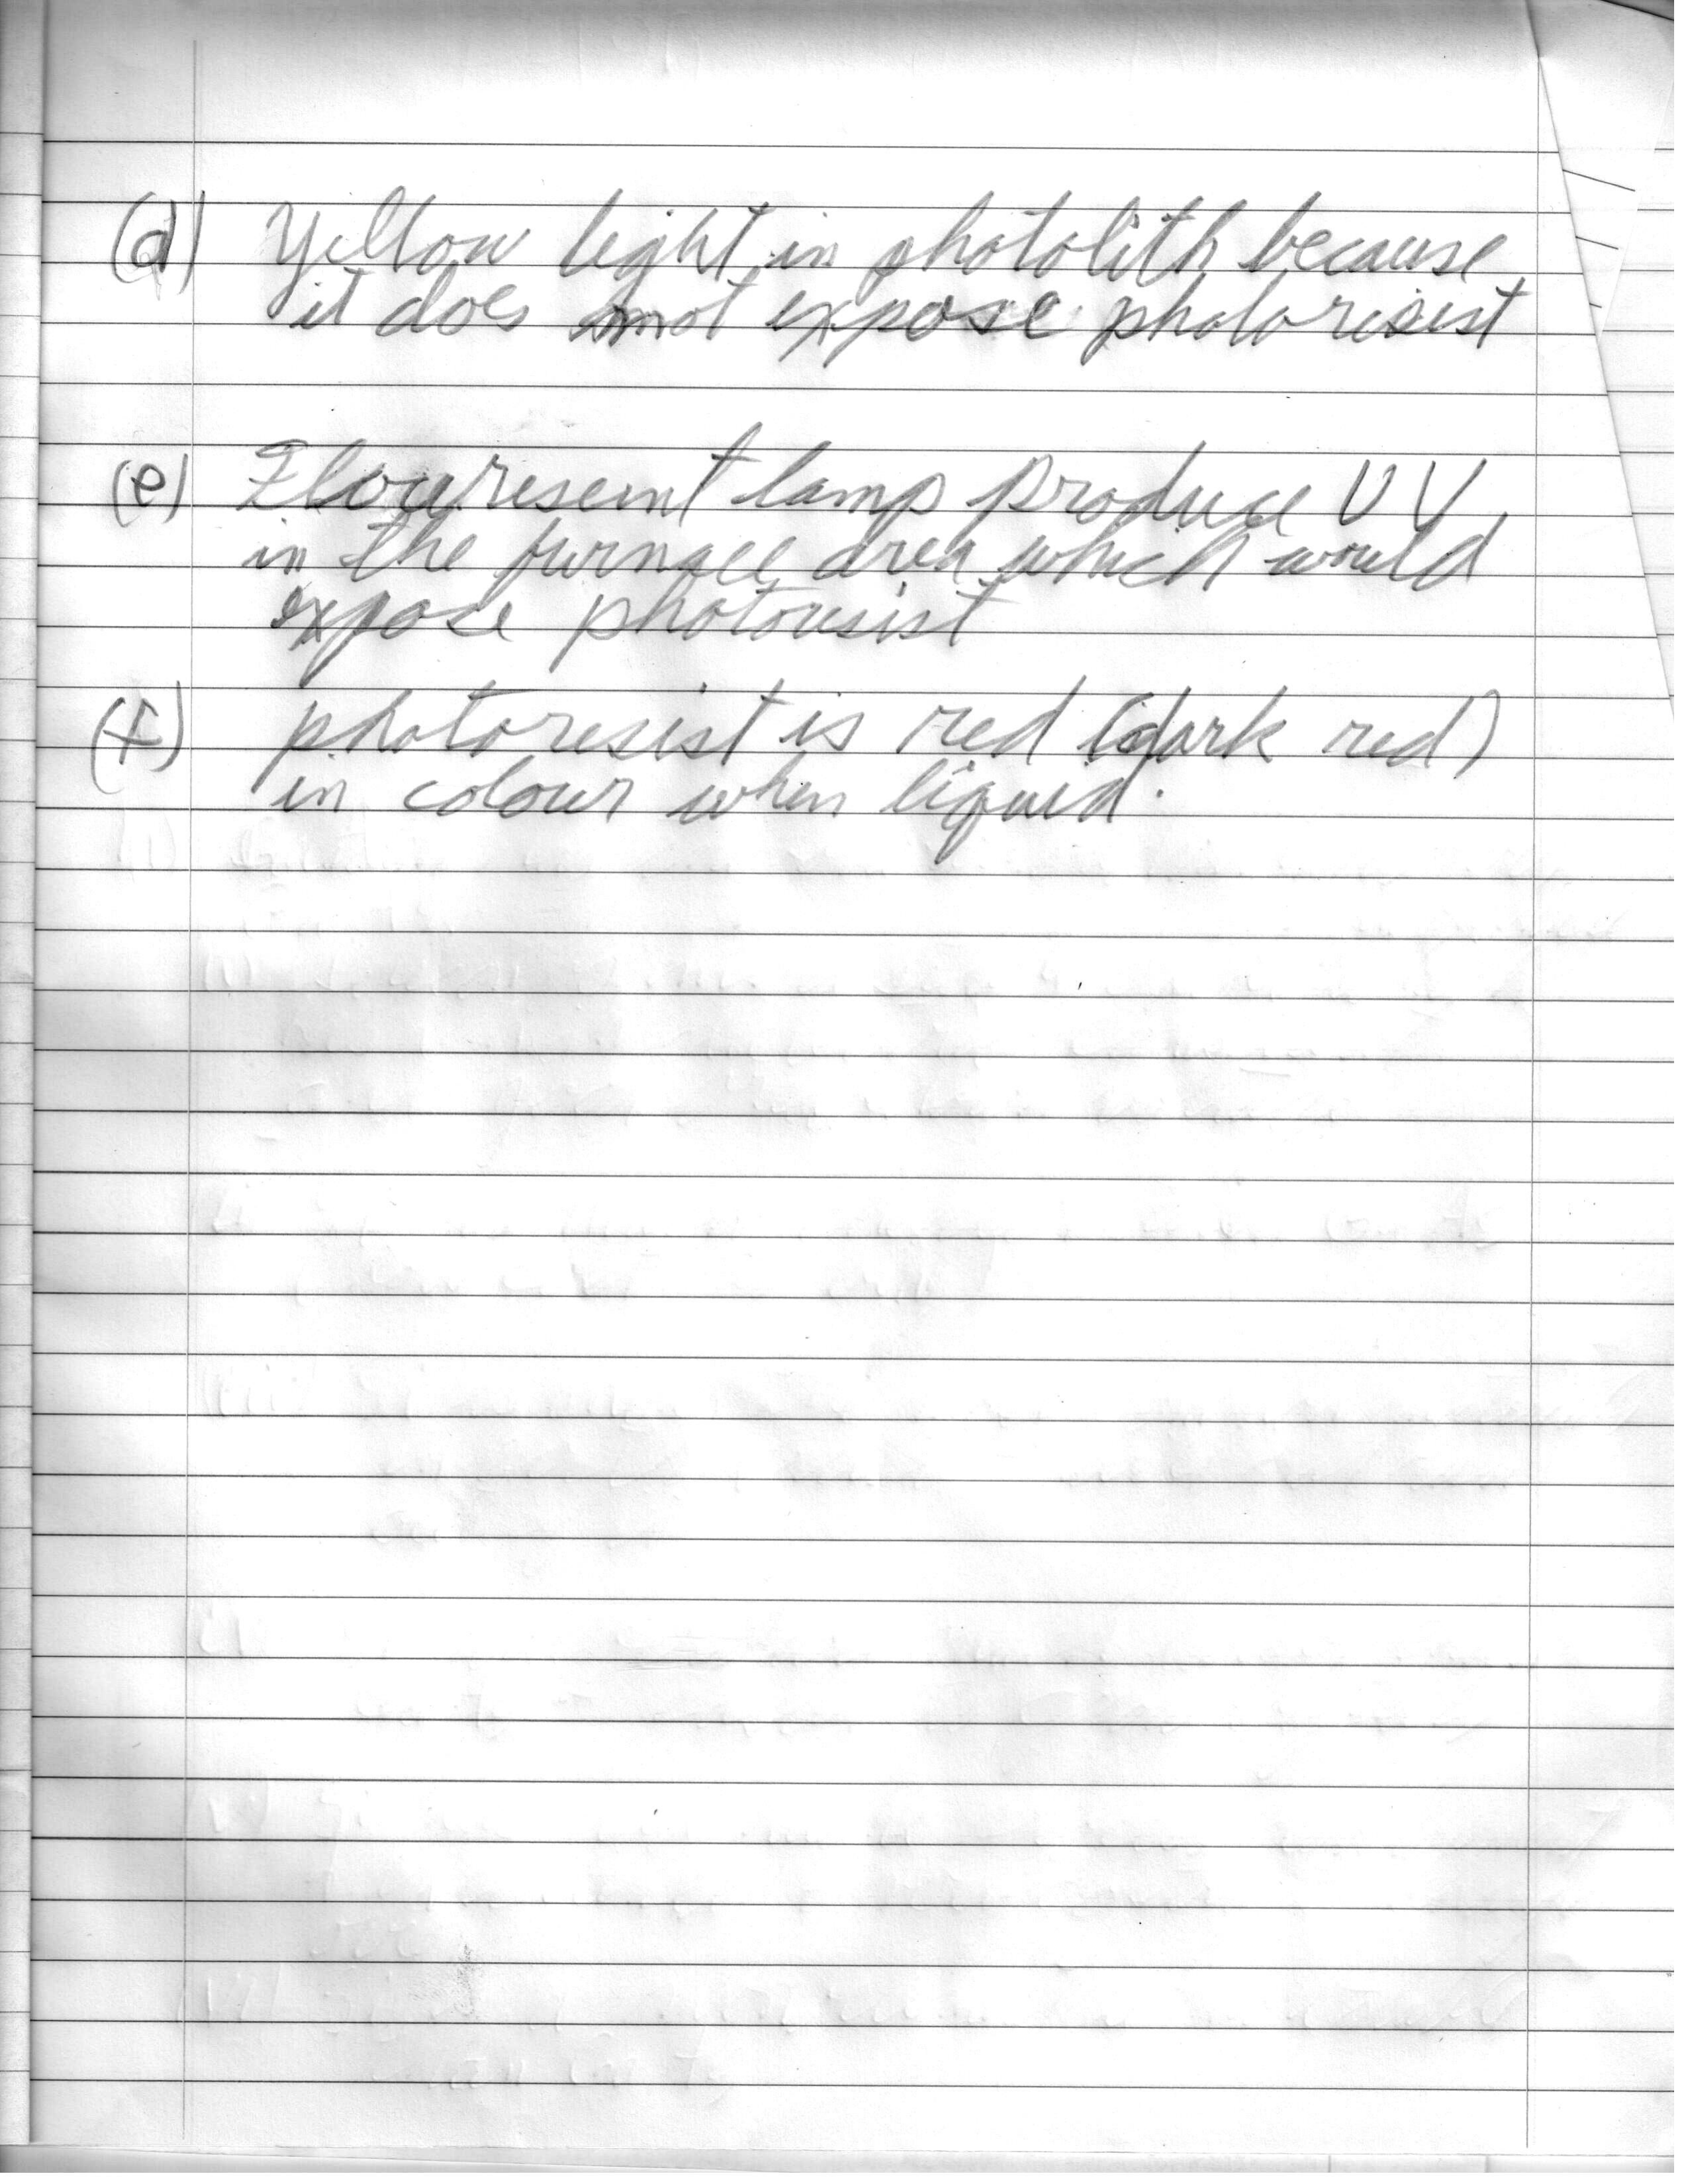 (d) Yellow light in photolith because
it does not expose photoresist
(e) Flouresent lamp produce UV
in the furnace area which would
expose photoresist
(f) photoresist is red (dark red)
in colour when liquid.